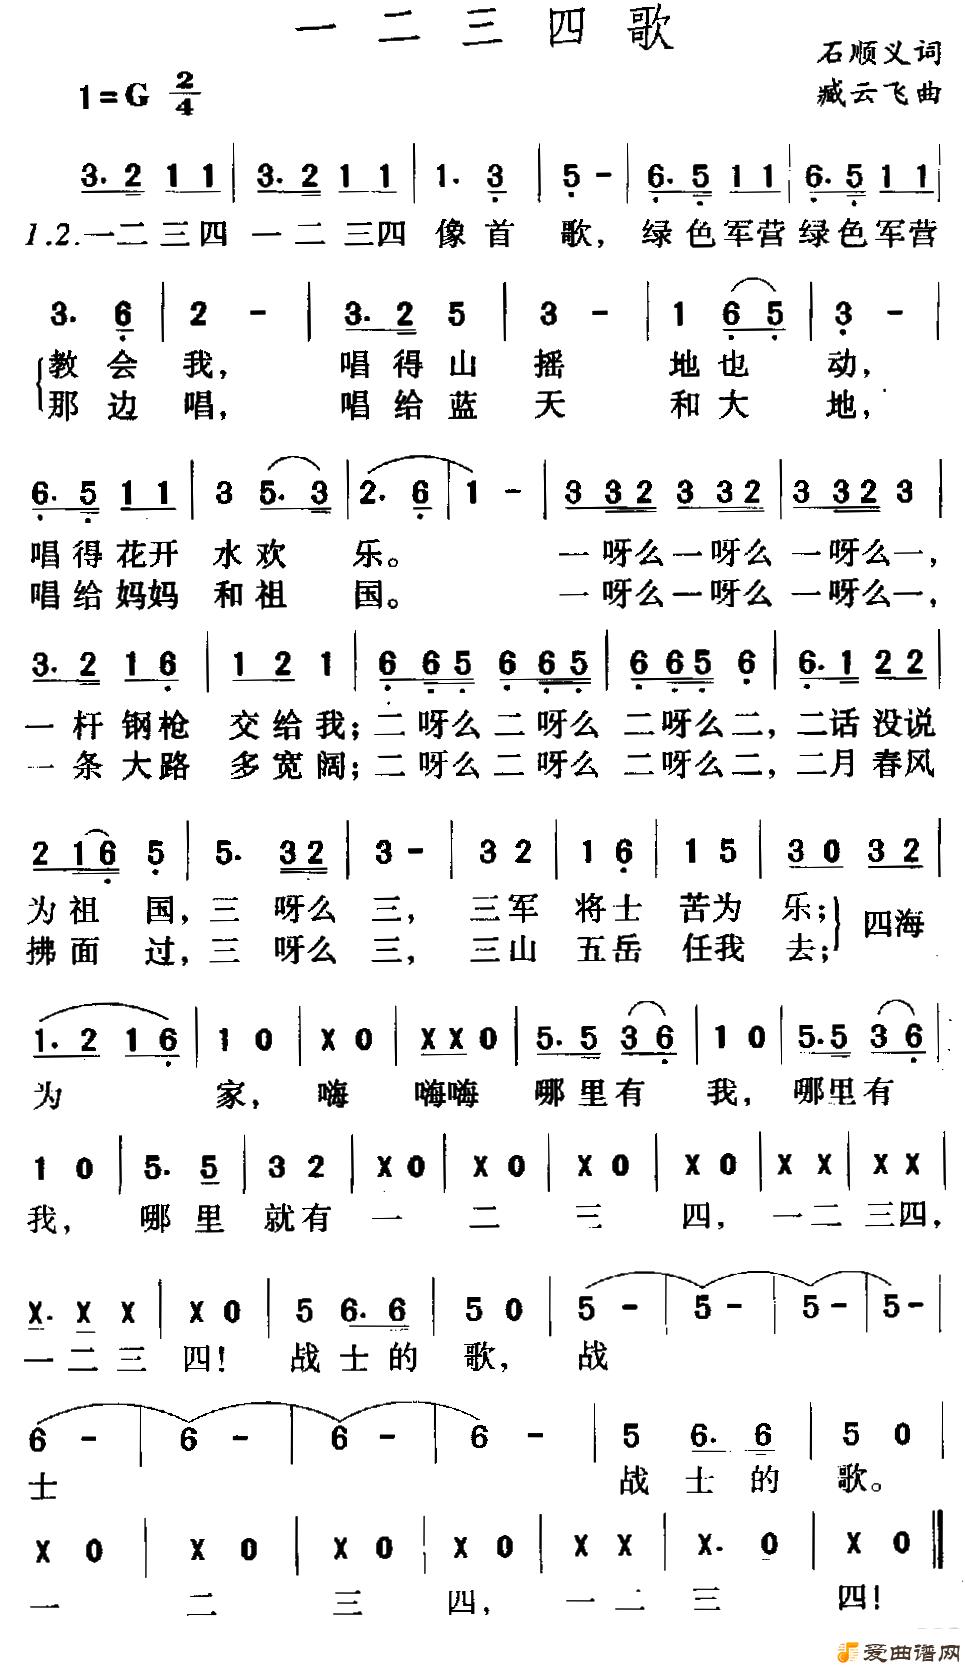 一二三四歌
石顺义词
1=G 2/4
臧云飞曲
3. 2 1 1 | 3. 2 1 1 | 1. 3 | 5 - | 6. 5 1 1 | 6. 5 1 1 |
1.2.一二三四 一二三四 像首 歌, 绿色军营 绿色军营
3. 6 | 2 - | 3. 2 5 | 3 - | 1 6 5 | 3 - |
教会 我, 唱得山 摇 地也 动,
那边 唱, 唱给蓝 天 和大 地,
6. 5 1 1 | 3 5. 3 | 2. 6 | 1 - | 3 3 2 3 3 2 | 3 3 2 3 |
唱得花开 水欢 乐。 一呀么一呀么 一呀么一,
唱给妈妈 和祖 国。 一呀么一呀么 一呀么一,
3. 2 1 6 | 1 2 1 | 6 6 5 6 6 5 | 6 6 5 6 | 6. 1 2 2 |
一杆钢枪 交给我; 二呀么二呀么 二呀么二, 二话没说
一条大路 多宽阔; 二呀么二呀么 二呀么二, 二月春风
2 1 6 5 | 5. 3 2 | 3 - | 3 2 | 1 6 | 1 5 | 3 0 3 2 |
为祖 国, 三 呀么 三, 三军 将士 苦为 乐; 四海
拂面 过, 三 呀么 三, 三山 五岳 任我 去;
1. 2 1 6 | 1 0 | X 0 | X X 0 | 5. 5 3 6 | 1 0 | 5. 5 3 6 |
为 家, 嗨 嗨嗨 哪里有 我, 哪里有
1 0 | 5. 5 | 3 2 | X 0 | X 0 | X 0 | X 0 | X X | X X |
我, 哪里 就有 一 二 三 四, 一二 三四,
X. X X | X 0 | 5 6. 6 | 5 0 | 5 - | 5 - | 5 - | 5 - |
一二三 四! 战士的 歌, 战
6 - | 6 - | 6 - | 6 - | 5 6. 6 | 5 0 |
士 战士的 歌。
X 0 | X 0 | X 0 | X 0 | X X | X. 0 | X 0 ‖
一 二 三 四, 一二 三 四!
爱曲谱网